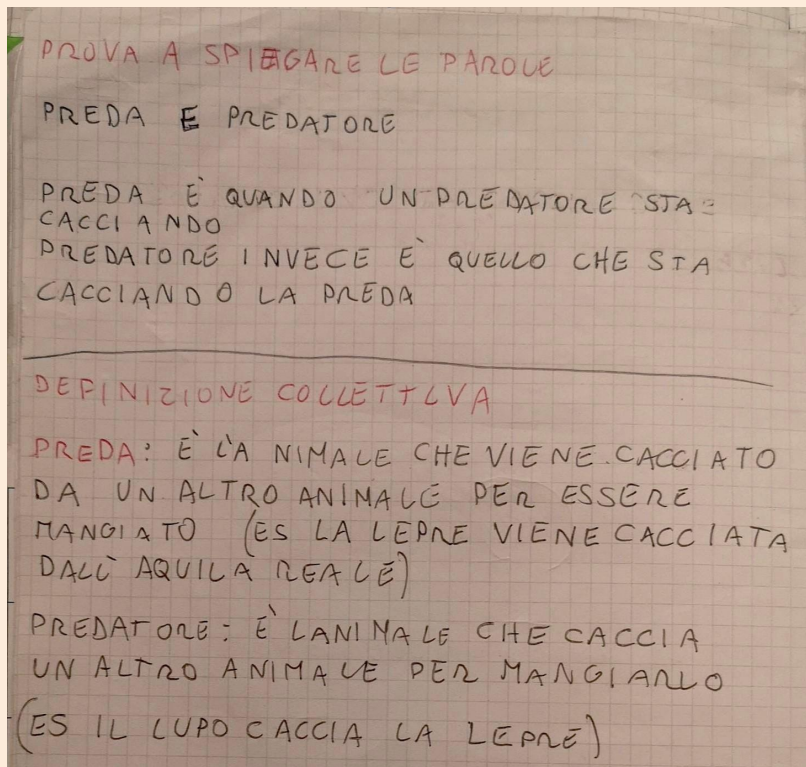 PROVA A SPIEGARE LE PAROLE
PREDA E PREDATORE
PREDA È QUANDO UN PREDATORE STA
CACCIANDO
PREDATORE INVECE È QUELLO CHE STA
CACCIANDO LA PREDA
DEFINIZIONE COLLETTIVA
PREDA: È L'ANIMALE CHE VIENE CACCIATO
DA UN ALTRO ANIMALE PER ESSERE
MANGIATO (ES LA LEPRE VIENE CACCIATA
DALL'AQUILA REALE)
PREDATORE: È LANIMALE CHE CACCIA
UN ALTRO ANIMALE PER MANGIARLO
(ES IL LUPO CACCIA LA LEPRE)